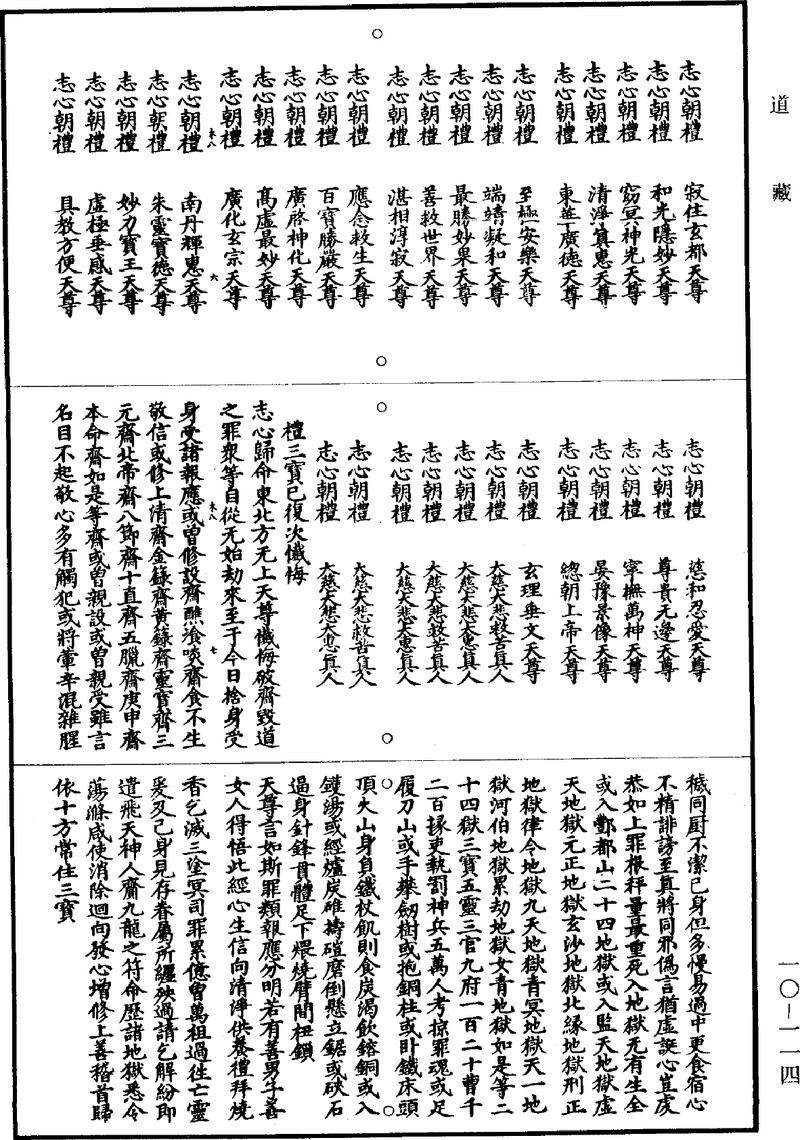 道藏
志心朝禮　寂住玄都天尊
志心朝禮　和光隱妙天尊
志心朝禮　窈冥神光天尊
志心朝禮　清淨真惠天尊
志心朝禮　東華廣德天尊
志心朝禮　至極安樂天尊
志心朝禮　端靖凝和天尊
志心朝禮　最勝妙果天尊
志心朝禮　善救世界天尊
志心朝禮　湛相淳寂天尊
志心朝禮　應念救生天尊
志心朝禮　百寶勝嚴天尊
志心朝禮　廣啓神化天尊
志心朝禮　高虛最妙天尊
志心朝禮　廣化玄宗天尊
志心朝禮　南丹輝惠天尊
志心朝禮　朱靈寶德天尊
志心朝禮　妙力寶王天尊
志心朝禮　虛極垂感天尊
志心朝禮　具教方便天尊
志心朝禮　慈和忍愛天尊
志心朝禮　尊貴无邊天尊
志心朝禮　寧撫萬神天尊
志心朝禮　晏豫景像天尊
志心朝禮　總朝上帝天尊
志心朝禮　玄理垂文天尊
志心朝禮　大慈大悲救苦真人
志心朝禮　大慈大悲大惠真人
志心朝禮　大慈大悲救苦真人
志心朝禮　大慈大悲大惠真人
志心朝禮　大慈大悲救苦真人
志心朝禮　大慈大悲大惠真人
禮三寶已復次懺悔
志心歸命東北方无上天尊懺悔破齋毀道
之罪衆等自從元始劫來至于今日捨身受
身受諸報應或曾修設齋醮飡啖齋食不生
敬信或修上清齋金籙齋黃籙齋靈寶齋三
元齋北帝齋八節齋十直齋五臘齋庚申齋
本命齋如是等齋或曾親設或曾親受雖言
名目不起敬心多有觸犯或將葷辛混雜腥
穢同厨不潔己身但多慢易過中更食宿心
不精誹謗至真將同邪偽言猶虛誕心豈虔
恭如上罪根秤量最重死入地獄无有生全
或入酆都山二十四地獄或入監天地獄虛
天地獄元正地獄玄沙地獄北緣地獄刑正
地獄律令地獄九天地獄青冥地獄天一地
獄河伯地獄累劫地獄女青地獄如是等二
十四獄三寶五靈三官九府一百二十曹千
二百掾吏執罰神兵五萬人考掠罪魂或足
履刀山或手攀劒樹或抱銅柱或卧鐵床頭
頂火山身負鐵杖飢則食炭渴飲鎔銅或入
鑊湯或經爐炭碓擣磑磨倒懸立鋸或硤石
逼身針鋒貫體足下煨燒臂間杻鎖
天尊言如斯罪類報應分明若有善男子善
女人得悟此經心生信向清淨供養禮拜燒
香乞滅三塗冥司罪累億曾萬祖過往亡靈
爰及己身見存眷屬所纒殃過請乞解紛即
遣飛天神人齎九龍之符命歷諸地獄悉令
蕩滌咸使消除迴向發心增修上善稽首歸
依十方常住三寶
一〇—一一四